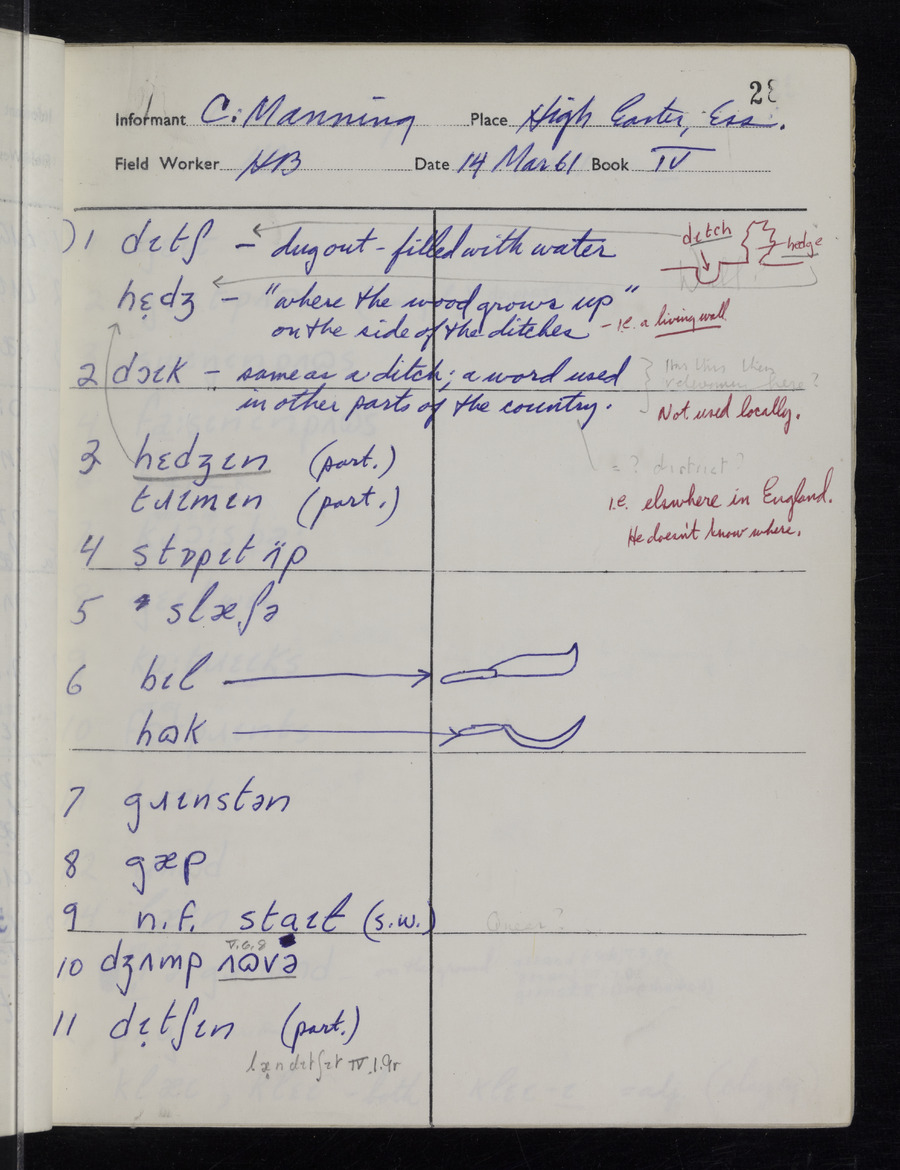 28
Informant C. Manning Place High Easter, Ess.
Field Worker HB Date 14 Mar 61 Book IV
1 dɪtʃ – dug out - filled with water
ditch
hedge
hɛ̣dʒ – "where the wood grows up"
on the side of the ditches – i.e. a living wall
2 dɔɪk – same as a ditch; a word used
in other parts of the country.
Not used locally.
3 hɛdʒɪn (part.)
= ? district?
tɹɪmɪn (part.)
i.e. elswhere in England.
He doesn't know where.
4 stɒpɪt ʌ̈p
5 slæʃə
6 bɪl
hɷk
7 gɹɪnstən
8 gæp
9 n.f. staɪt (s.w.)
V.6.8
10 dʒʌmp ʌɷvə
11 dɪ̣tʃɪn (part.)
læ̣ndɪtʃɪt IV.1.9r